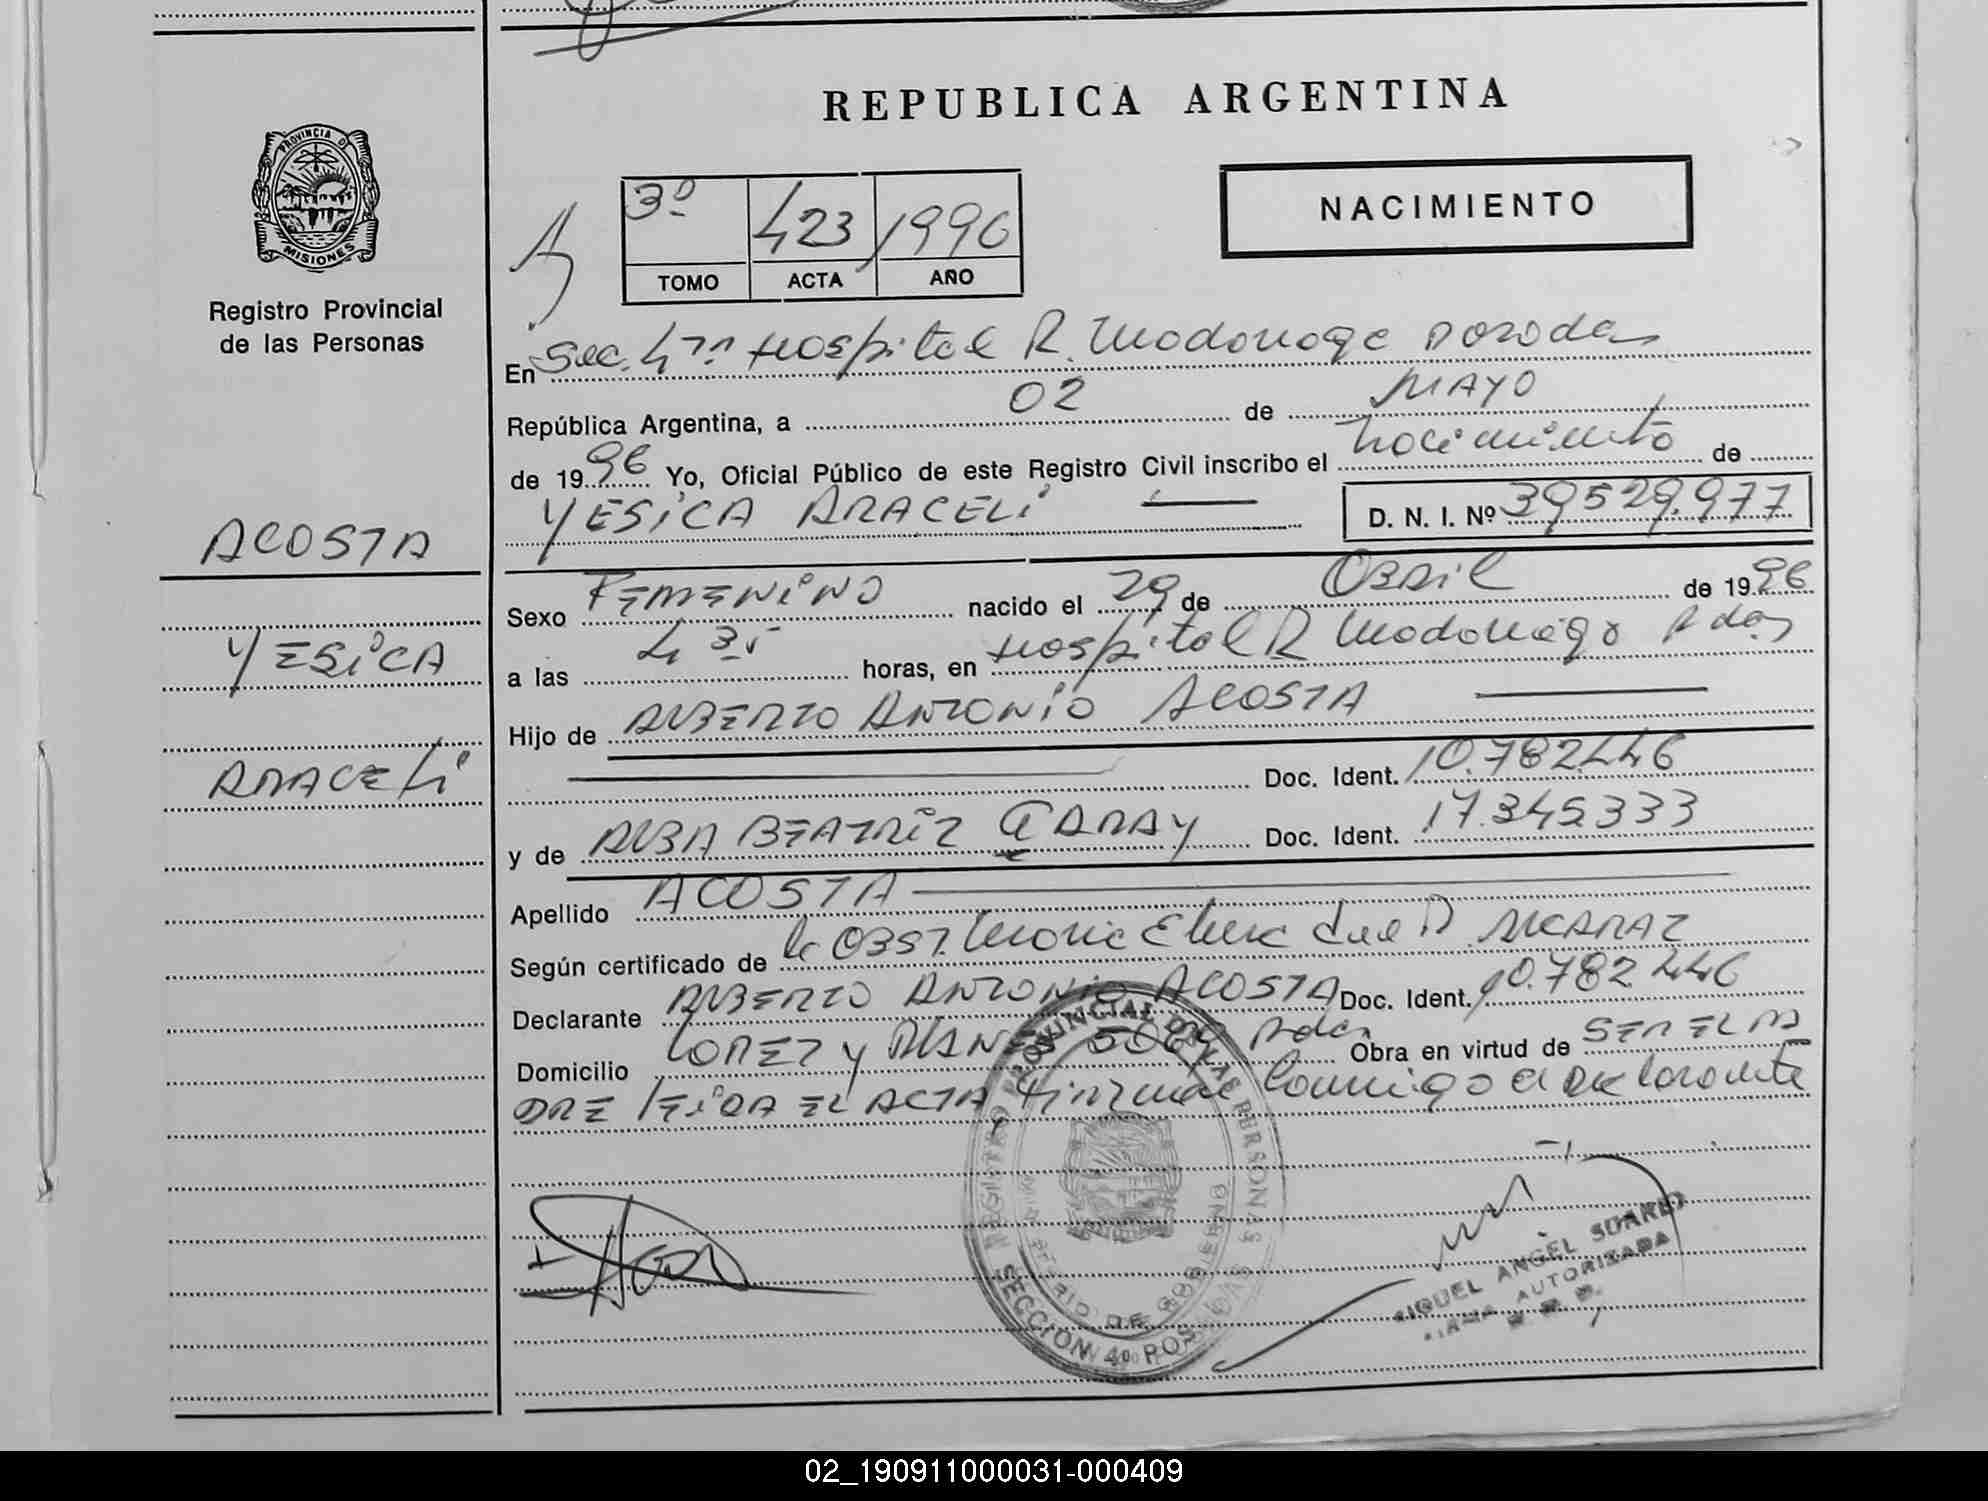 REPUBLICA ARGENTINA
PROVINCIA DE
MISIONES
Registro Provincial
de las Personas
3º 423 1996
TOMO ACTA AÑO
NACIMIENTO
En Sec. 4ta Hospital R. Madariaga Posadas
República Argentina, a 02 de MAYO
de 1996 Yo, Oficial Público de este Registro Civil inscribo el nacimiento de
YESICA ARACELI D. N. I. Nº 39529.977
ACOSTA
Sexo FEMENINO nacido el 29 de Abril de 1996
YESICA
a las 4 35 horas, en Hospital R Madariaga Pdas
Hijo de ALBERTO ANTONIO ACOSTA
ARACELI
Doc. Ident. 10.782.446
y de ALBA BEATRIZ GARAY Doc. Ident. 17.345.333
Apellido ACOSTA
Según certificado de la OBST. Maria Elena del P. ALCARAZ
Declarante ALBERTO ANTONIO ACOSTA Doc. Ident. 10.782.446
Domicilio LOPEZ y PLANES Pdas Obra en virtud de SER EL PA
DRE LEIDA EL ACTA, firma conmigo el Declarante
REGISTRO PROVINCIAL DE LAS PERSONAS
MINISTERIO DE GOBIERNO
SECCION 4º POSADAS
MIGUEL ANGEL SUAREZ
FIRMA AUTORIZADA
02_190911000031-000409